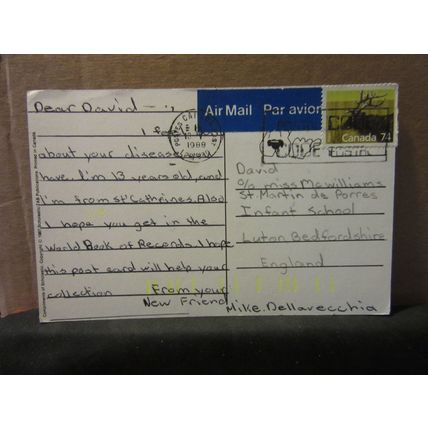 Dear David
I
about your disease
have. I'm 13 years old, and
I'm from St Cathrines. Also
I hope you get in the
World Book of Records. I hope
this post card will help your
collection From your
New Friend,
Mike. Dellavecchia
Air Mail Par avion
Canada 74
1989
David
c/o miss McWilliams
St. Martin de Porres
Infant School
Luton Bedfordshire
England